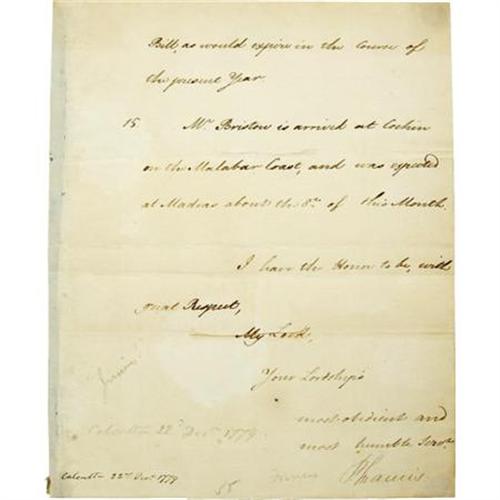 Bill, as would expire in the Course of
the present Year
15. Mr. Bristow is arrived at Cochin
on the Malabar Coast, and was expected
at Madras about the 8th of this Month.
I have the Honor to be, with
great Respect,
My Lord,
Your Lordship's
most obedient and
most humble Servt.
P Francis
Francis
Calcutta 22d Decr. 1779.
Calcutta 22d Decr. 1779